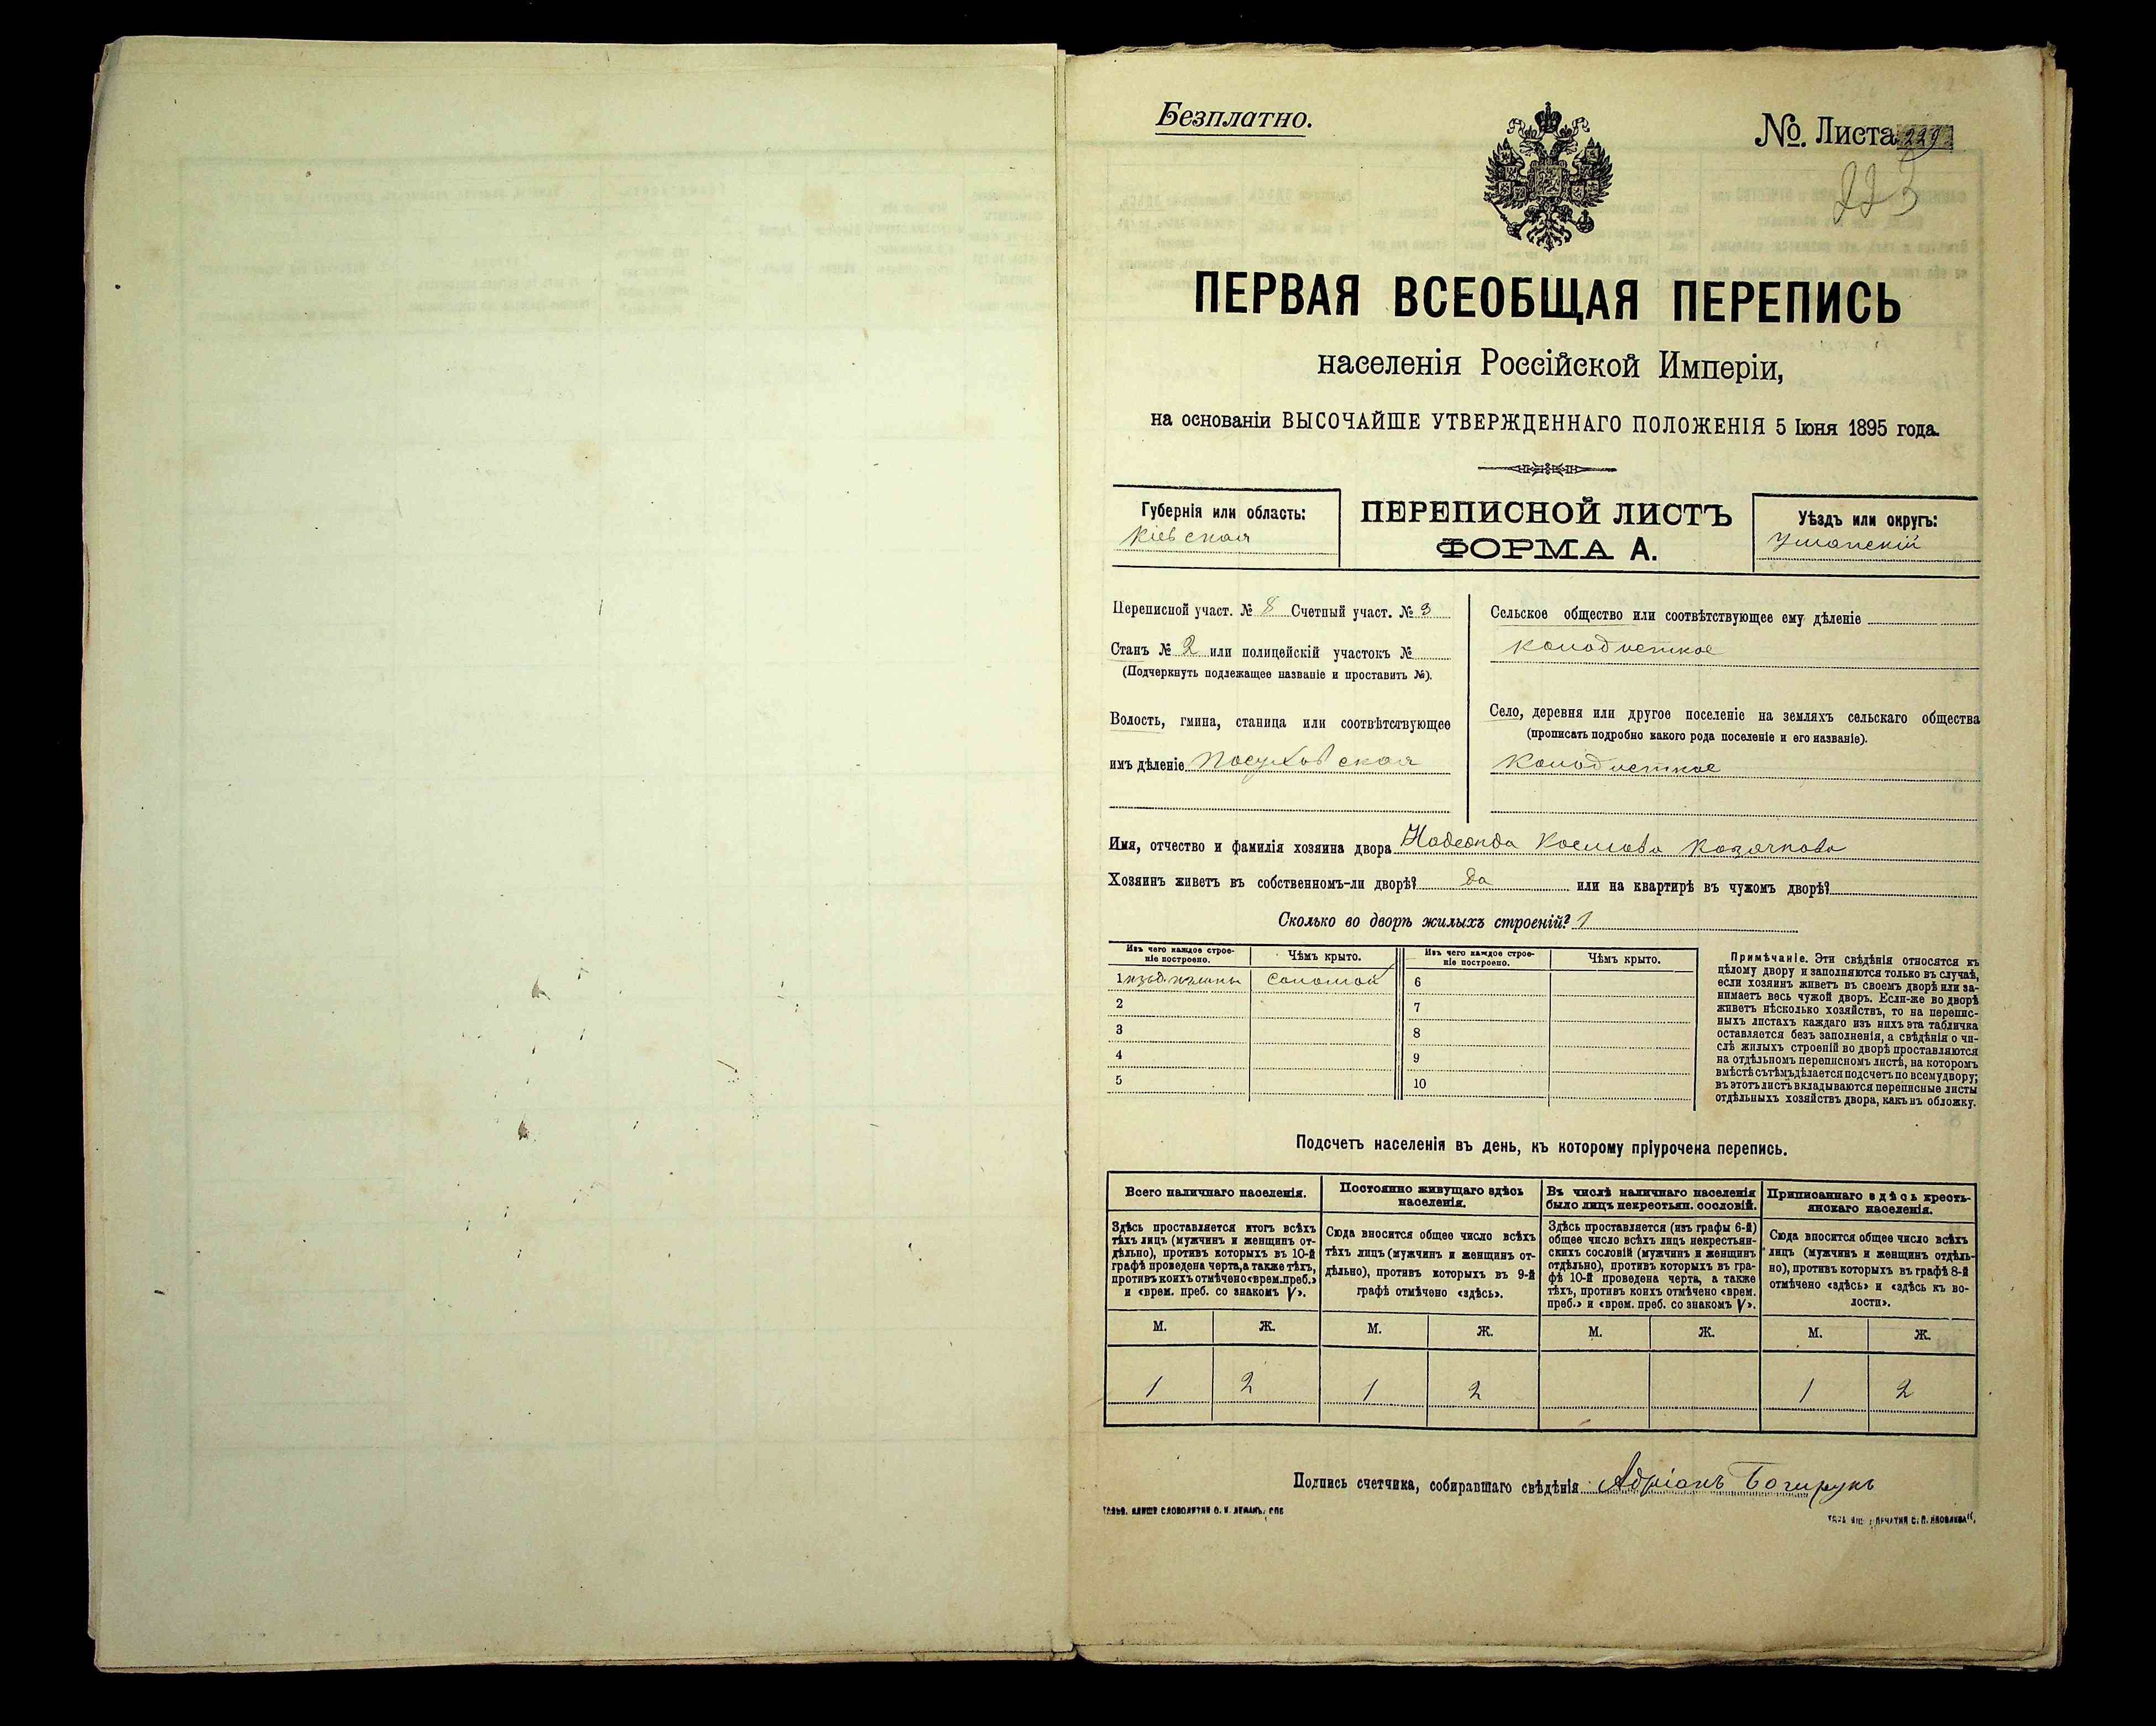 Безплатно.
№. Листа 229
223
ПЕРВАЯ ВСЕОБЩАЯ ПЕРЕПИСЬ
населенія Россійской Имперіи,
на основаніи ВЫСОЧАЙШЕ УТВЕРЖДЕННАГО ПОЛОЖЕНІЯ 5 Іюня 1895 года.
Губернія или область:
Кіевская
ПЕРЕПИСНОЙ ЛИСТЪ
ФОРМА А.
Уѣздъ или округъ:
Уманскій
Переписной участ. № 8 Счетный участ. № 3
Станъ № 2 или полицейскій участокъ №
(Подчеркнуть подлежащее названіе и проставить №).
Волость, гмина, станица или соотвѣтствующее
имъ дѣленіе Посуховская
Сельское общество или соотвѣтствующее ему дѣленіе
Колодисткое
Село, деревня или другое поселеніе на земляхъ сельскаго общества
(прописать подробно какого рода поселеніе и его названіе).
Колодисткое
Имя, отчество и фамилія хозяина двора Козачкова
Хозяинъ живетъ въ собственномъ-ли дворѣ? да или на квартирѣ въ чужомъ дворѣ?
Сколько во дворѣ жилыхъ строеній? 1
Изъ чего каждое строе-
ніе построено.
Чѣмъ крыто.
Изъ чего каждое строе-
ніе построено.
Чѣмъ крыто.
1 Соломой 6
2 7
3 8
4 9
5 10
Примѣчаніе. Эти свѣдѣнія относятся къ
цѣлому двору и заполняются только въ случаѣ,
если хозяинъ живетъ въ своемъ дворѣ или за-
нимаетъ весь чужой дворъ. Если-же во дворѣ
живетъ нѣсколько хозяйствъ, то на перепис-
ныхъ листахъ каждаго изъ нихъ эта табличка
оставляется безъ заполненія, а свѣдѣнія о чи-
слѣ жилыхъ строеній во дворѣ проставляются
на отдѣльномъ переписномъ листѣ, на которомъ
вмѣстѣ съ тѣмъ дѣлается подсчетъ по всему двору;
въ этотъ листъ вкладываются переписные листы
отдѣльныхъ хозяйствъ двора, какъ въ обложку.
Подсчетъ населенія въ день, къ которому пріурочена перепись.
Всего наличнаго населенія.
Здѣсь проставляется итогъ всѣхъ
тѣхъ лицъ (мужчинъ и женщинъ от-
дѣльно), противъ которыхъ въ 10-й
графѣ проведена черта, а также тѣхъ,
противъ коихъ отмѣчено «врем. преб.»
и «врем. преб. со знакомъ V».
Постоянно живущаго здѣсь
населенія.
Сюда вносится общее число всѣхъ
тѣхъ лицъ (мужчинъ и женщинъ от-
дѣльно), противъ которыхъ въ 9-й
графѣ отмѣчено «здѣсь».
Въ числѣ наличнаго населенія
было лицъ некрестьян. сословій.
Здѣсь проставляется (изъ графы 6-й)
общее число всѣхъ лицъ некрестьян-
скихъ сословій (мужчинъ и женщинъ
отдѣльно), противъ которыхъ въ гра-
фѣ 10-й проведена черта, а также
тѣхъ, противъ коихъ отмѣчено «врем.
преб.» и «врем. преб. со знакомъ V».
Приписаннаго здѣсь кресть-
янскаго населенія.
Сюда вносится общее число всѣхъ
лицъ (мужчинъ и женщинъ отдѣль-
но), противъ которыхъ въ графѣ 8-й
отмѣчено «здѣсь» и «здѣсь къ во-
лости».
М. Ж. М. Ж. М. Ж. М. Ж.
1 2 1 2 1 2
Подпись счетчика, собиравшаго свѣдѣнія Адріанъ